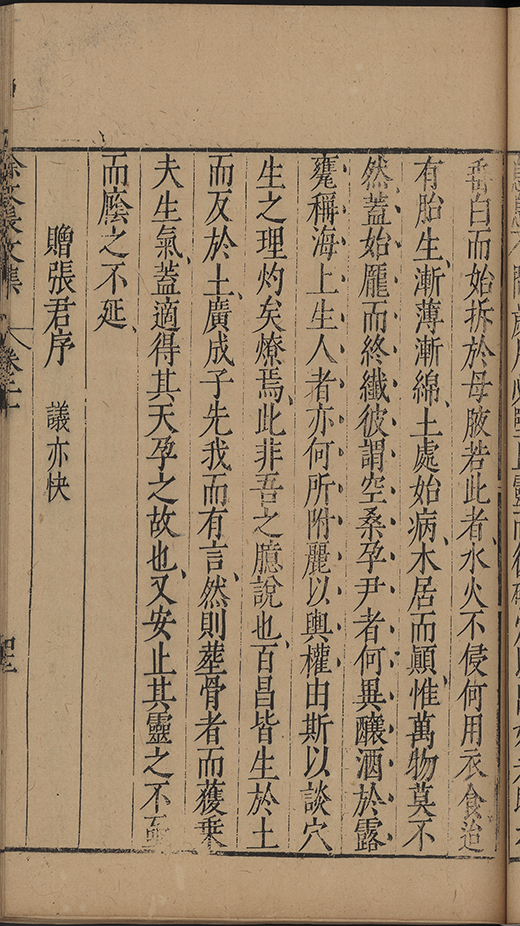 番白而始拆於母腋若此者、水火不侵何用衣食迨
有胎生、漸薄漸綿、土處始病、木居而顛、惟萬物莫不
然、蓋始厖而終纖彼謂空桑孕尹者何異釀酒於露
甕稱海上生人者亦何所附麗以輿權由斯以談穴
生之理灼矣燎焉、此非吾之臆說也、百昌皆生於土
而反於土、廣成子先我而有言、然則塟骨者而蒦乗
夫生氣、蓋適得其天孕之故也、又安止其靈之不
而廕之不延、
贈張君序 議亦快
徐文長文集 卷二十